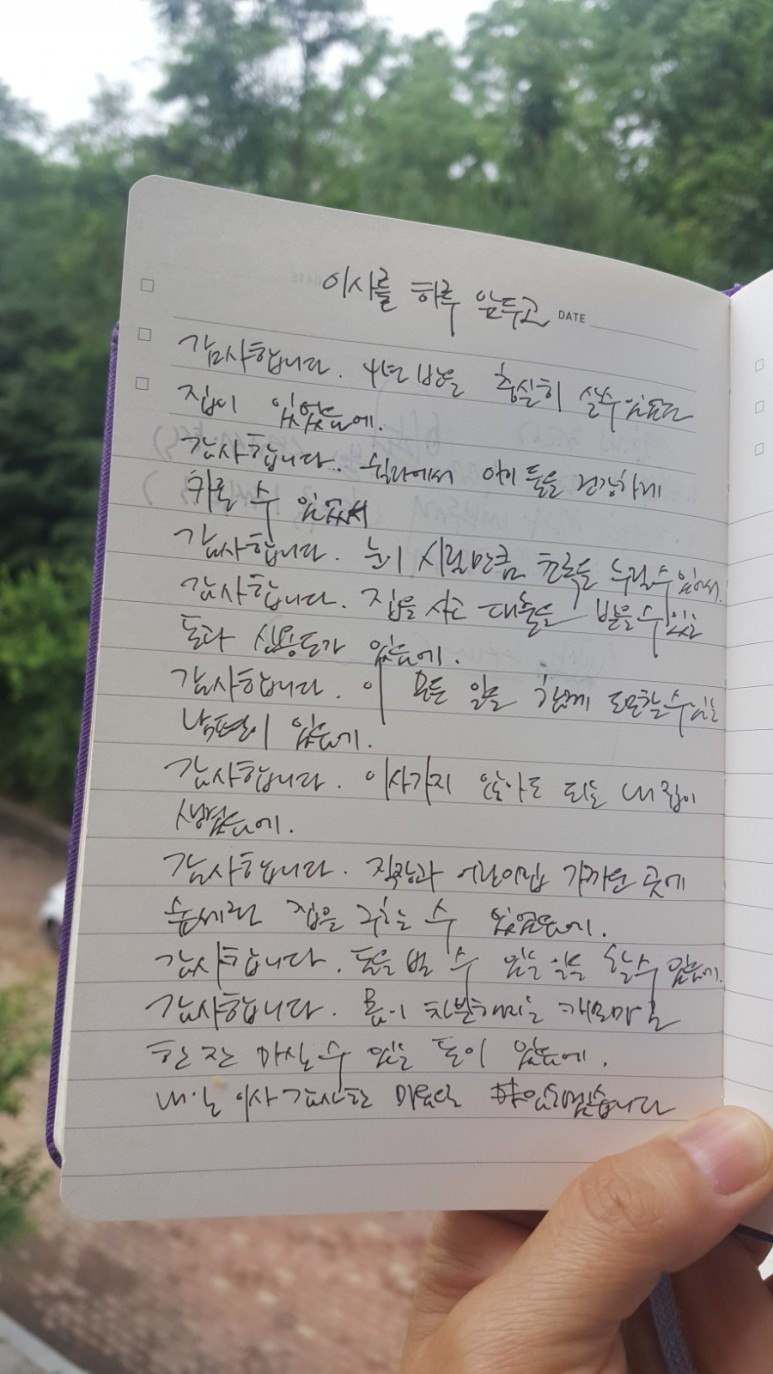 이사를 하루 앞두고
DATE
감사합니다. 4년 반을 충실히 살수있었던
집이 있었음에.
감사합니다. 아이들을 건강하게
키울 수 있어서
감사합니다. 눈이 시릴만큼 초록을 누릴수있어서.
감사합니다. 집을 사고 대출을 받을수있는
돈과 신용도가 있음에.
감사합니다. 이 모든 일을 함께 도모할수있는
남편이 있음에.
감사합니다. 이사가지 않아도 되는 내집이
생겼음에.
감사합니다. 직장과 어린이집 가까운 곳에
숲세권 집을 구하는 수 있었음에.
감사합니다. 돈을 벌 수 있는 일을 할수 있음에.
감사합니다. 몸이 차분해지는 캐모마일
한 잔 마실 수 있는 돈이 있음에.
내일 이사 감사한 마음만